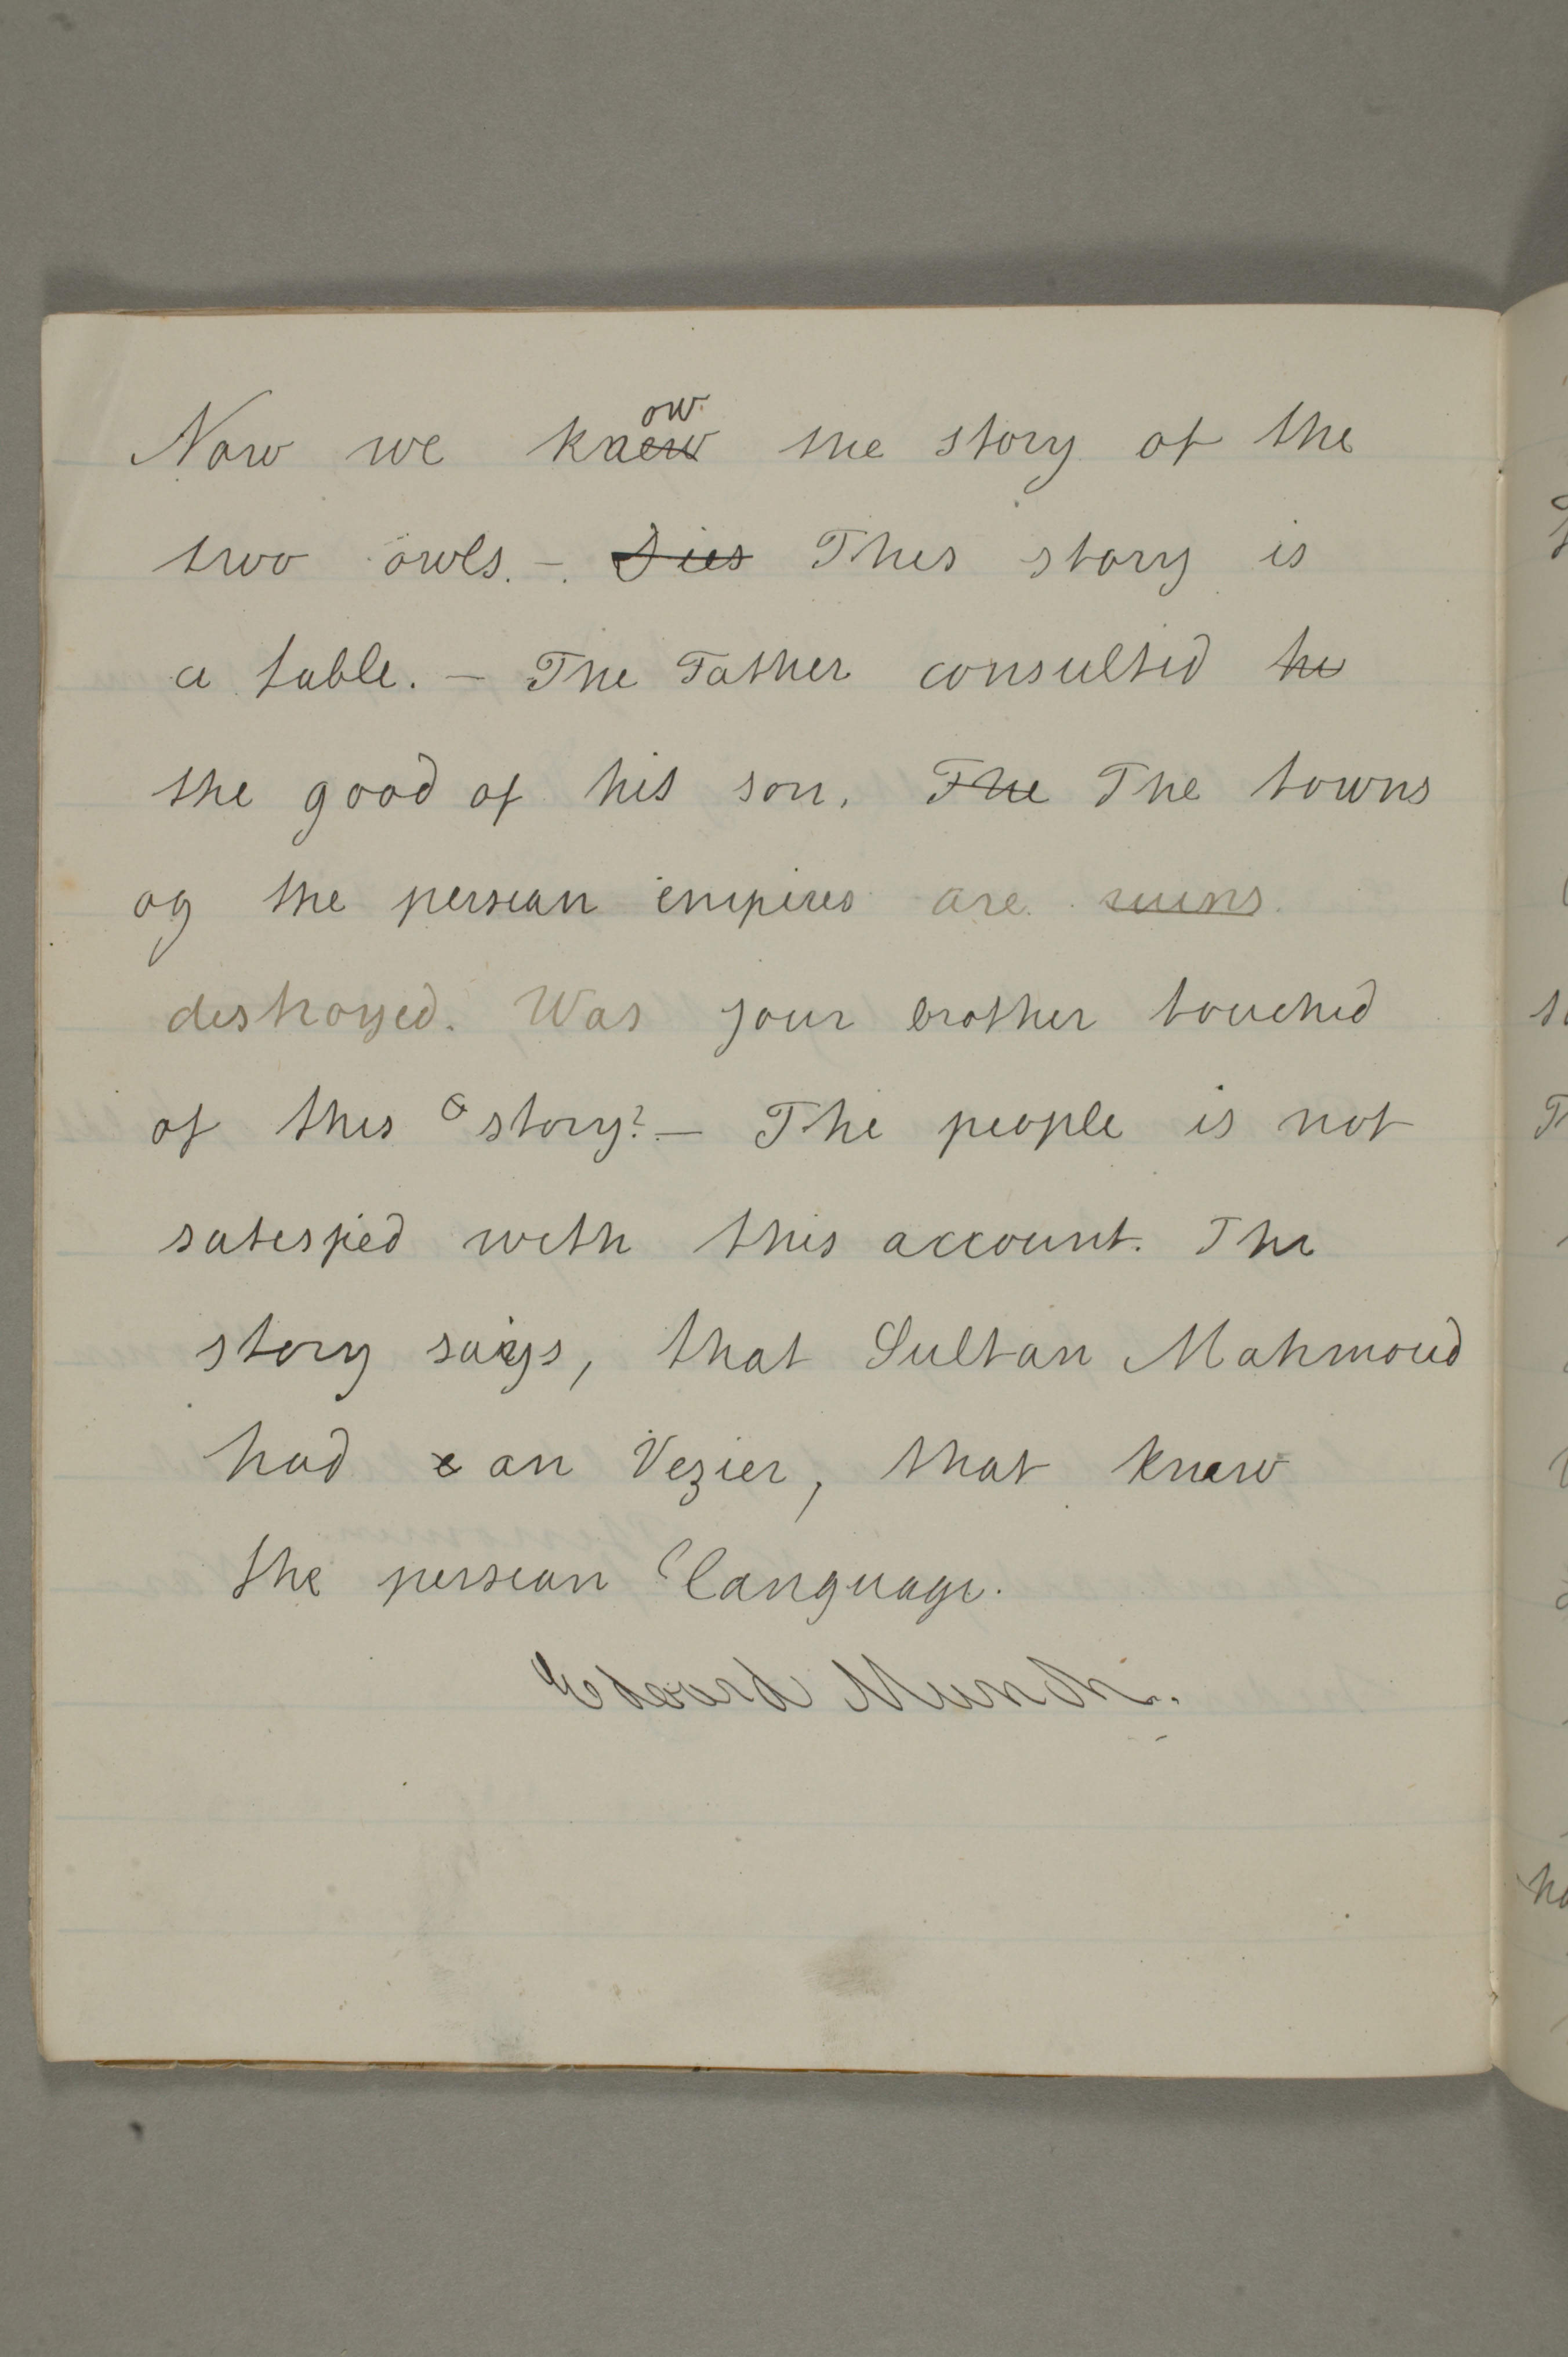 Now we know the story of the
two owls. - Dies This story is
a fable. - The Father consulted he
the good of his son. The The towns
og the persian empires are ruins
destroyed. Was your brother touched
of this story? - The people is not
satisfied with this account. The
story says, that Sultan Mahmoud
had a an Vezier, that knew
the persian language.
Edvard Munch.